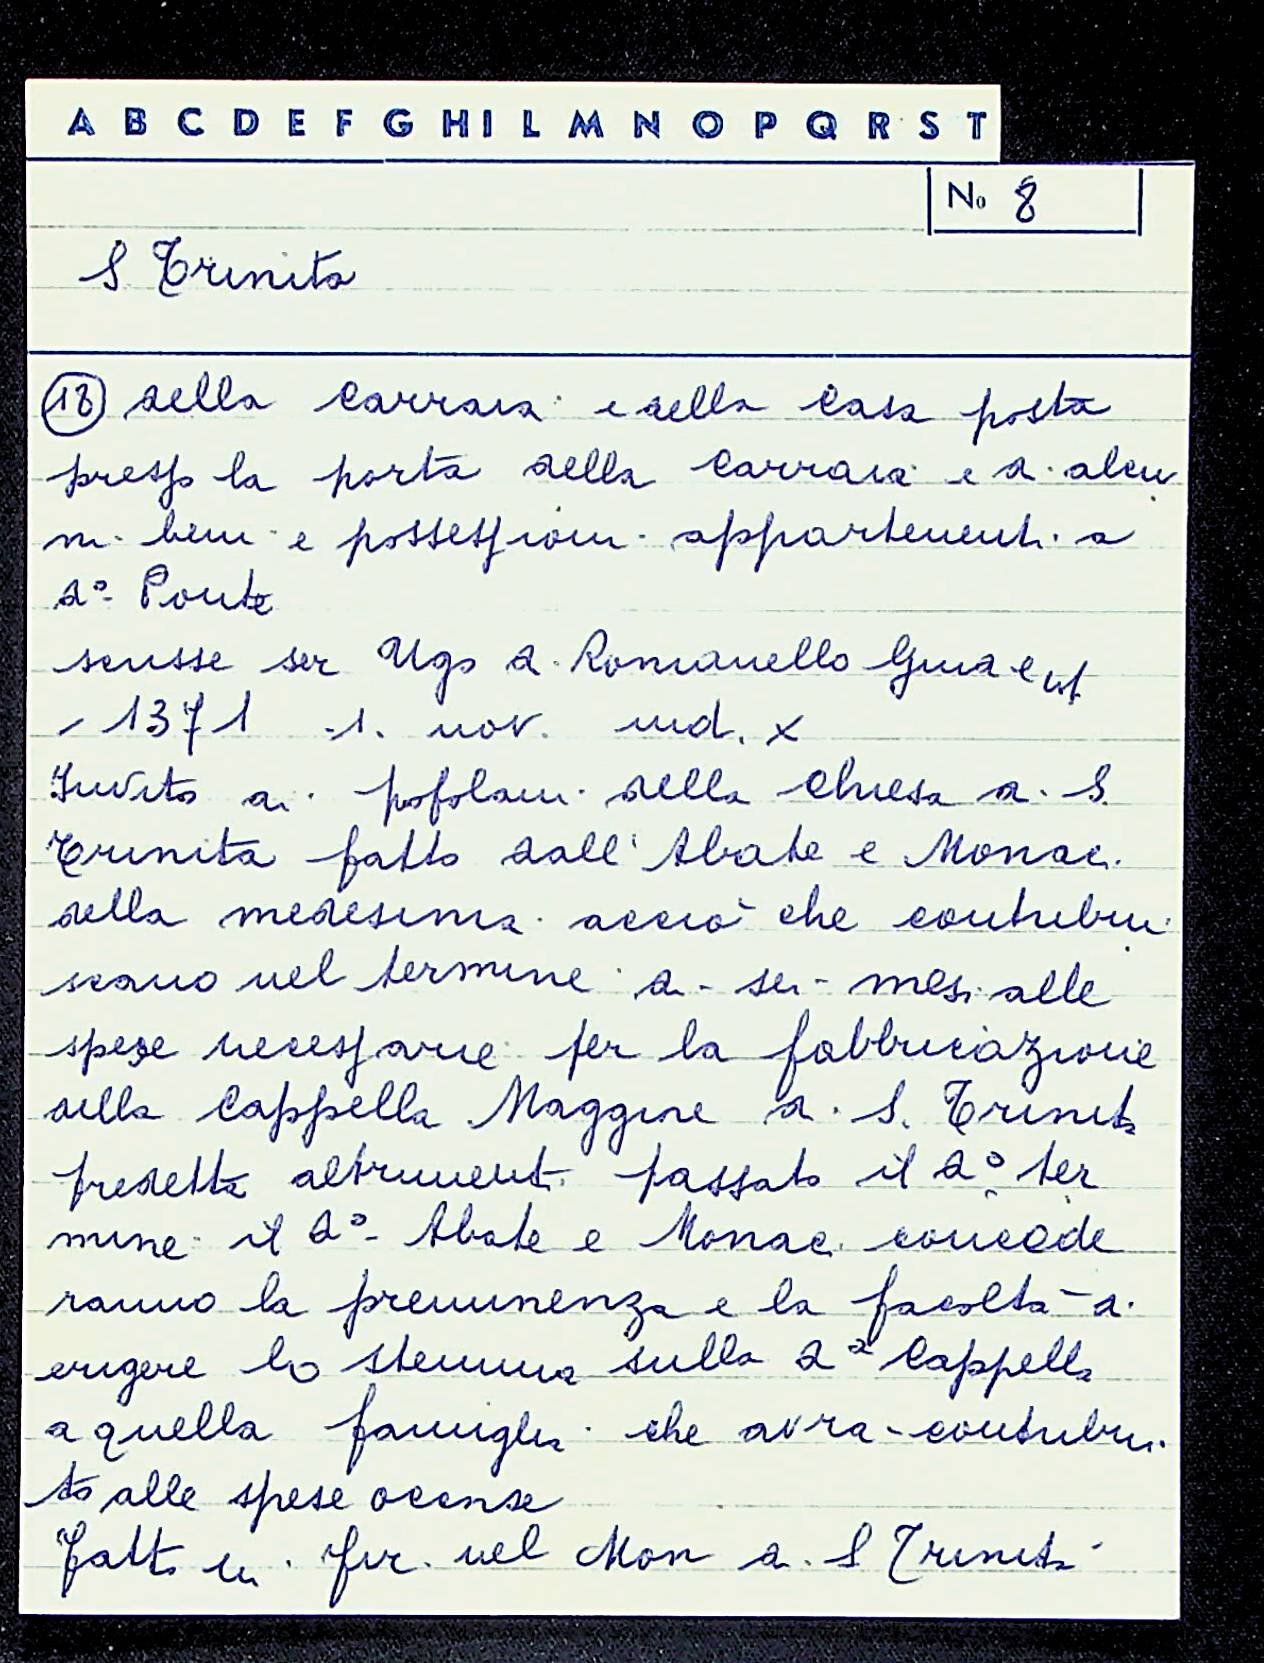 A B C D E F G H I L M N O P Q R S T
No 8
S. Trinita
(18) della Carraia e della Casa posta
presso la porta della Carraia e di alcu
ni beni e possessioni appartenenti a
do Ponte
scrisse ser Ugo di Romanello
- 1371 1. nov. ind. X
Invito ai popolani della Chiesa di S.
Trinita fatto dall'Abate e Monaci
della medesima acciò che contribui
scano nel termine di sei mesi alle
spese necessarie per la fabbricazione
della Cappella Maggiore di S. Trinita
predetta altrimenti passato il do ter
mine il do Abate e Monaci concede
ranno la preminenza e la facoltà di
erigere lo stemma sulla da Cappella
a quella famiglia che avrà contribui
to alle spese occorse
fatto in Fir. nel Mon di S Trinità